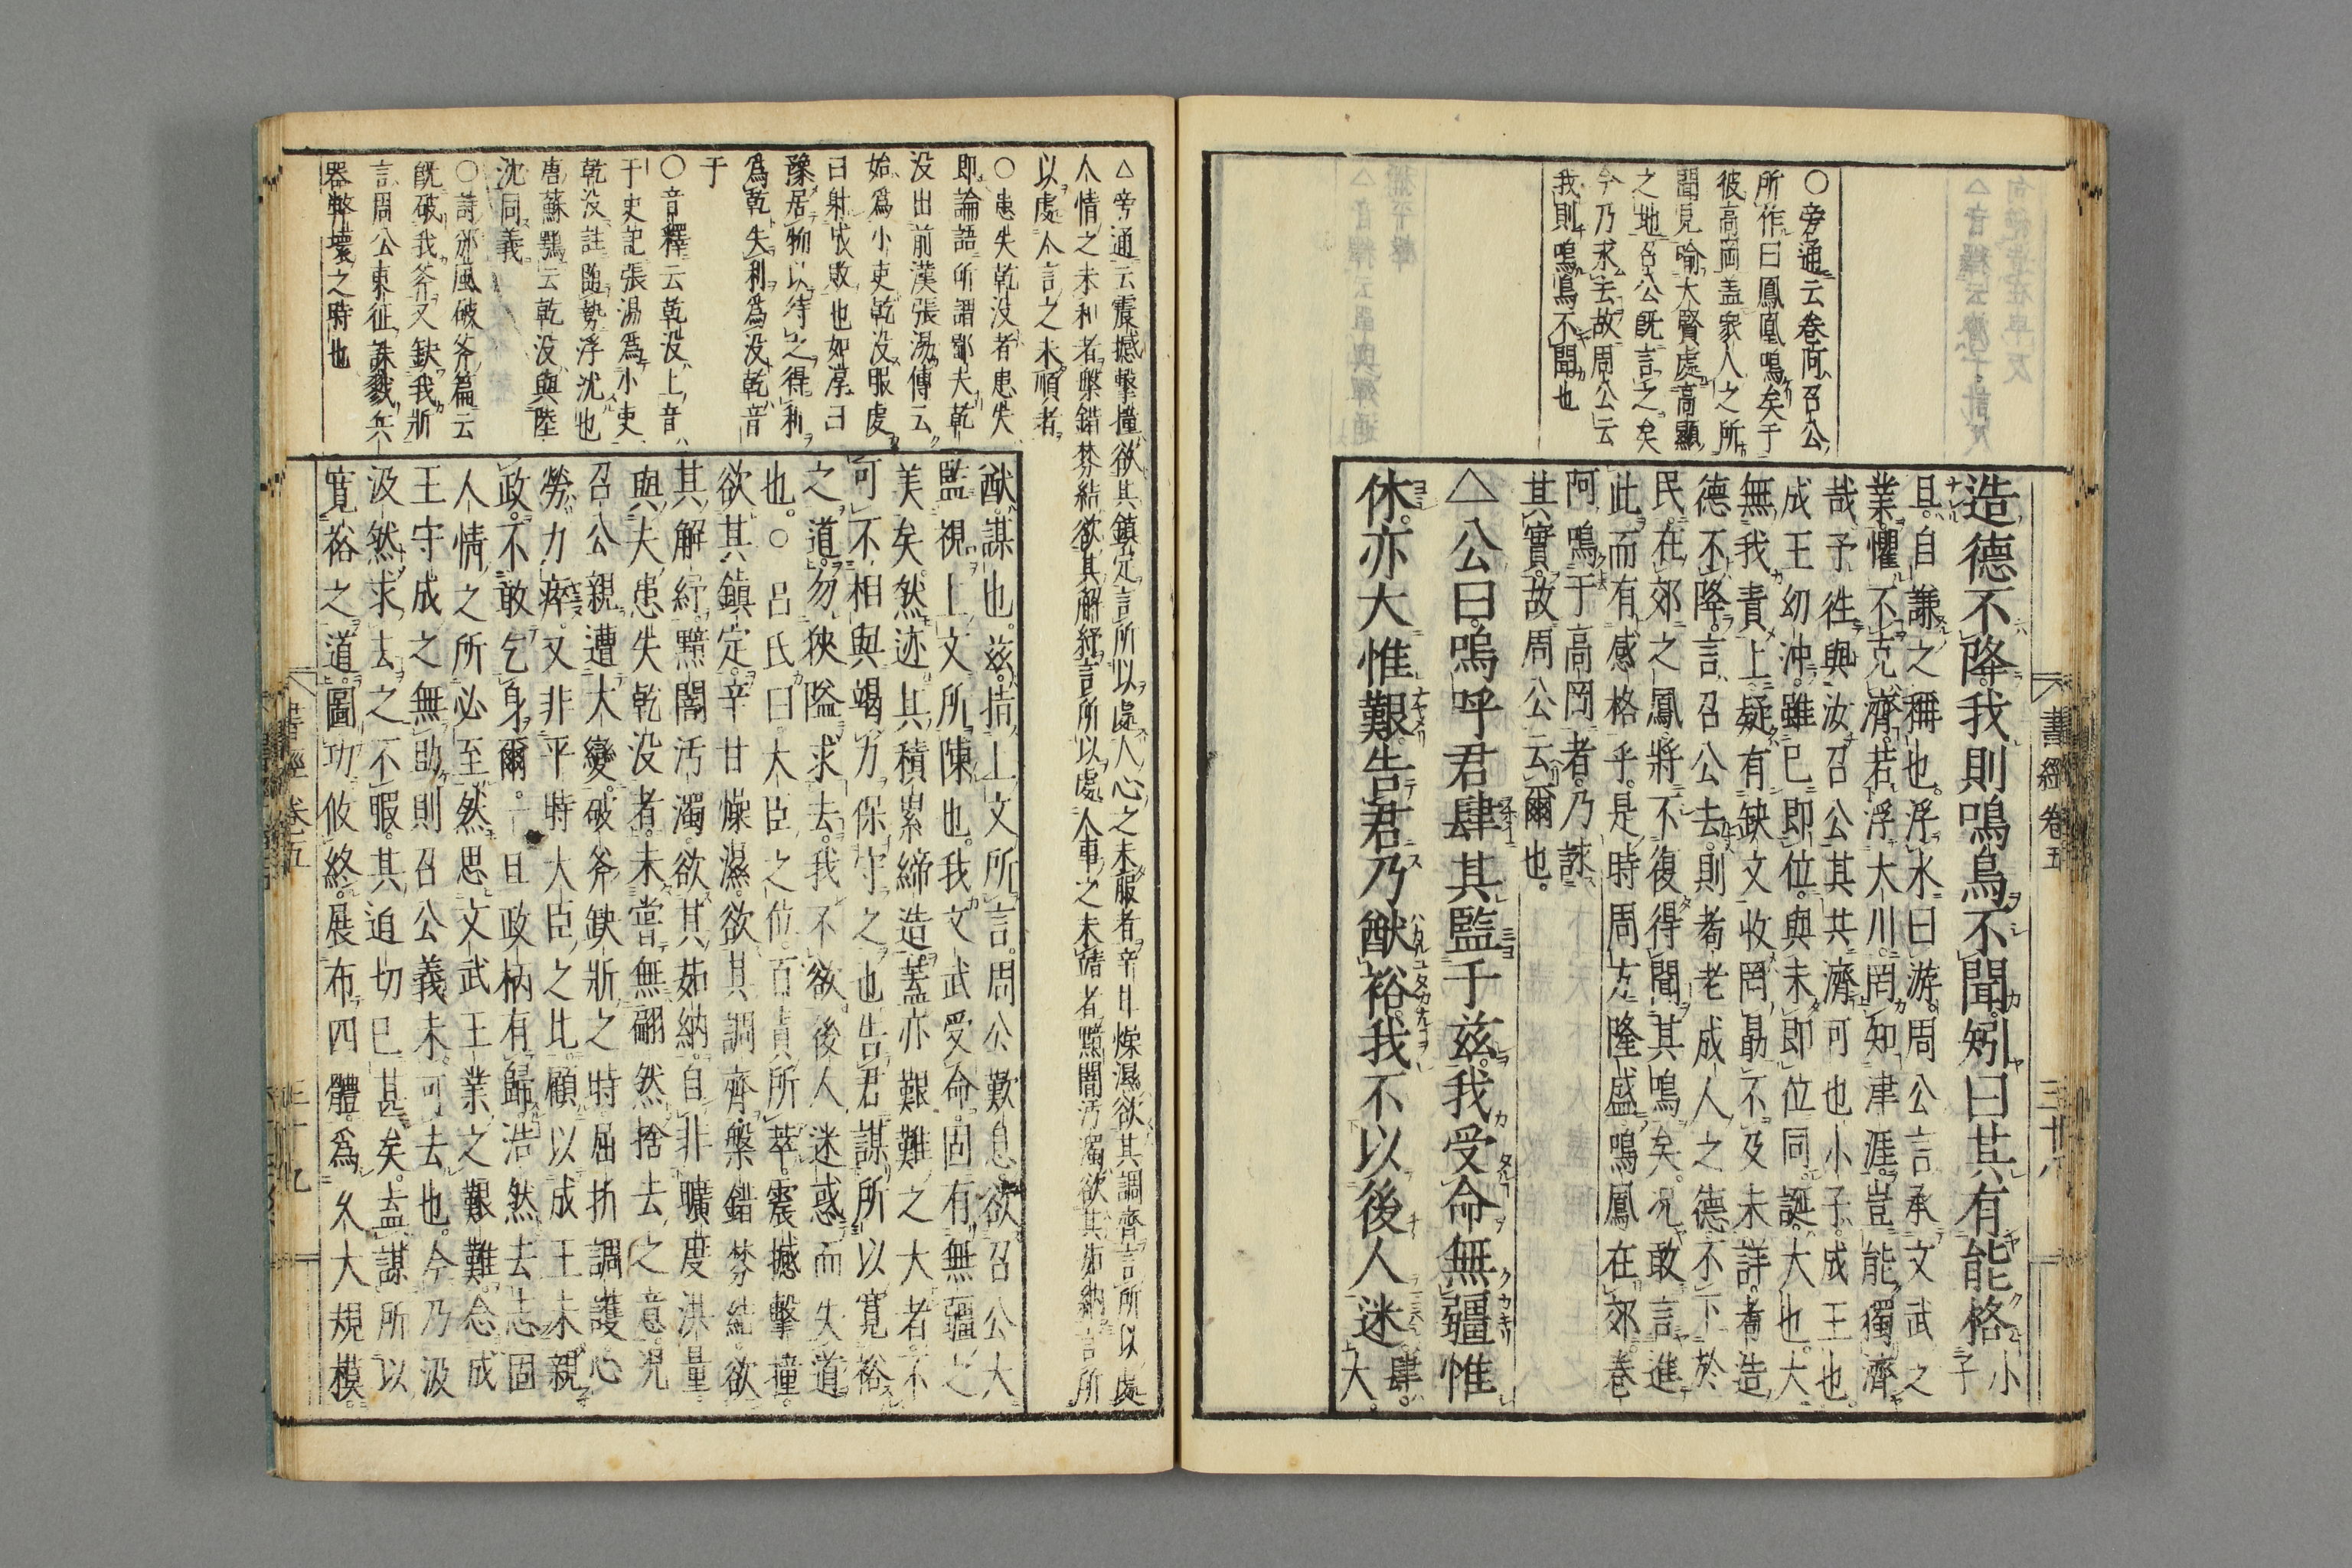 書經卷五
三十八
○旁通云卷阿召公
所作曰鳳凰鳴矣于
彼高岡盖衆人之所
聞見喻大賢處高顯
之地召公旣言之矣
今乃求去故周公云
我則鳴鳥不聞也
造德不降我則鳴鳥不聞矧曰其有能格小子
旦自謙之稱也浮水曰游周公言承文武之
業懼不克濟若浮大川罔知津涯豈能獨濟
哉予徃與汝召公其共濟可也小子成王也
成王幼沖雖已即位與未即位同誕大也大
無我責上疑有缺文收罔勗不及未詳耉造
德不降言召公去則耉老成人之德不下於
民在郊之鳳將不復得聞其鳴矣况敢言進
此而有感格乎是時周方隆盛鳴鳳在郊卷
阿鳴于高岡者乃詠
其實故周公云爾也
△公曰嗚呼君肆其監于兹我受命無疆惟
休亦大惟艱告君乃猷裕我不以後人迷肆大
△旁通云震撼擊撞欲其鎮定言所以處人心之未服者辛甘燥濕欲其調齊言所以處
人情之未和者槃錯棼結欲其解紓言所以處人事之未緒者黯闇汚濁欲其茹納言所
以處人言之未順者
○患失乾没者患失
即論語所謂鄙夫乾
没出前漢張湯傳云
始爲小吏乾没服虔
曰射成敗也如淳曰
豫居物以待之得利
爲乾失利爲没乾音
于
○音釋云乾没上音
于史記張湯爲小吏
乾没註隨勢浮沈也
唐蘇鶚云乾没與陸
沈同義
○詩豳風破斧篇云
旣破我斧又缺我斨
言周公東征誅戮兵
器弊壞之時也
猷謀也兹指上文所言周公歎息欲召公大
監視上文所陳也我文武受命固有無疆之
美矣然迹其積累締造蓋亦艱難之大者不
可不相與竭力保守之也告君謀所以寛裕
之道勿狹隘求去我不欲後人迷惑而失道
也○呂氏曰大臣之位百責所萃震撼擊撞
欲其鎮定辛甘燥濕欲其調齊槃錯棼結欲
其解紓黯闇汚濁欲其茹納自非曠度洪量
與夫患失乾没者未嘗無翩然捨去之意况
召公親遭大變破斧缺斨之時屈折調護心
勞力瘁又非平時大臣之比顧以成王未親
政不敢乞身爾一旦政柄有歸浩然去志固
人情之所必至然思文武王業之艱難念成
王守成之無助則召公義未可去也今乃汲
汲然求去之不暇其迫切已甚矣盍謀所以
寛裕之道圖功攸終展布四體爲久大規模
書經卷五
三十九